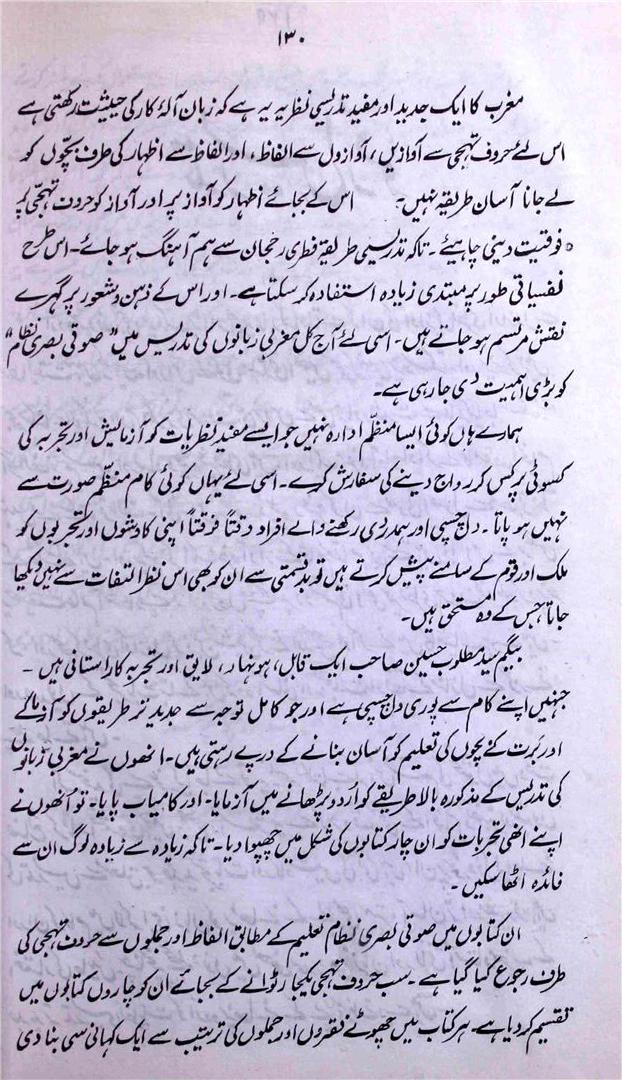 ۱۳۰
مغرب کا ایک جدید اور مفید تدریسی نظریہ یہ ہے کہ زبان آلۂ کار کی حیثیت رکھتی ہے
اس لئے حروف تہجی سے آوازیں، آوازوں سے الفاظ، اور الفاظ سے اظہار کی طرف بچّوں کو
لے جانا آسان طریقہ نہیں۔ اس کے بجائے اظہار کو آواز پر اور آواز کو حروف تہجّی پر
فوقیت دینی چاہیئے۔ تاکہ تدریسی طریقہ فطری رحجان سے ہم آہنگ ہو جائے۔ اس طرح
نفسیاتی طور پر مبتدی زیادہ استفادہ کر سکتا ہے۔ اور اس کے ذہن و شعور پر گہرے
نقش مرتسم ہو جاتے ہیں۔ اسی لئے آج کل مغربی زبانوں کی تدریس میں "صوتی بصری نظام"
کو بڑی اہمیت دی جا رہی ہے۔
ہمارے ہاں کوئی ایسا منظّم ادارہ نہیں جو ایسے مفید نظریات کو آزمایش اور تجربہ کی
کسوٹی پر کس کر رواج دینے کی سفارش کرے۔ اسی لئے یہاں کوئی کام منظّم صورت سے
نہیں ہو پاتا۔ دلچسپی اور ہمدردی رکھنے والے افراد وقتاً فوقتاً اپنی کاوشوں اور تجربوں کو
ملک اور قوم کے سامنے پیش کرتے ہیں تو بدقسمتی سے ان کو بھی اس نظر التفات سے نہیں دیکھا
جاتا جس کے وہ مستحق ہیں۔
بیگم سید مطلوب حسین صاحب ایک قابل، ہونہار، لایق اور تجربہ کار استانی ہیں۔
جنہیں اپنے کام سے پوری دلچسپی ہے اور جو کامل توجہ سے جدید تر طریقوں کو آزمانے
اور برت کے بچوں کی تعلیم کو آسان بنانے کے درپے رہتی ہیں۔ انھوں نے مغربی زبانوں
کی تدریس کے مذکورہ بالا طریقے کو اُردو پڑھانے میں آزمایا۔ اور کامیاب پایا۔ تو اُنھوں نے
اپنے انھی تجربات کو ان چار کتابوں کی شکل میں چھپوا دیا۔ تاکہ زیادہ سے زیادہ لوگ ان سے
فائدہ اٹھا سکیں۔
ان کتابوں میں صوتی بصری نظام تعلیم کے مطابق الفاظ اور جملوں سے حروف تہجی کی
طرف رجوع کیا گیا ہے۔ سب حروف تہجی یکجا رٹوانے کے بجائے ان کو چاروں کتابوں میں
تقسیم کر دیا ہے۔ ہر کتاب میں چھوٹے فقروں اور جملوں کی ترتیب سے ایک کہانی سی بنا دی